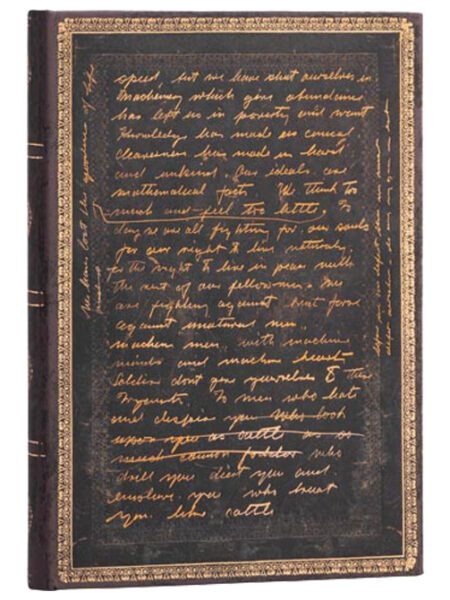 speed but we have shut ourselves in
machinery which gives abundance
has left us in poverty and want
Knowledge has made us cynical
cleverness has made us hard
and unkind. Our ideals are
mathematical facts. We think too
much and feel too little. To
day we are all fighting for our souls
for our right to live naturally
for the right to live in peace with
the rest of our fellowmen. We
are fighting against brut force
against unatural men.
machen men. with machine
minds and machine hearts
Soldiers dont give yourselves to these
To men who hate
and despise you who look
upon you as cattle as so
much cannon fodder who
drill you diet you and
enslave you who treat
you like cattle
We have lost the
of life